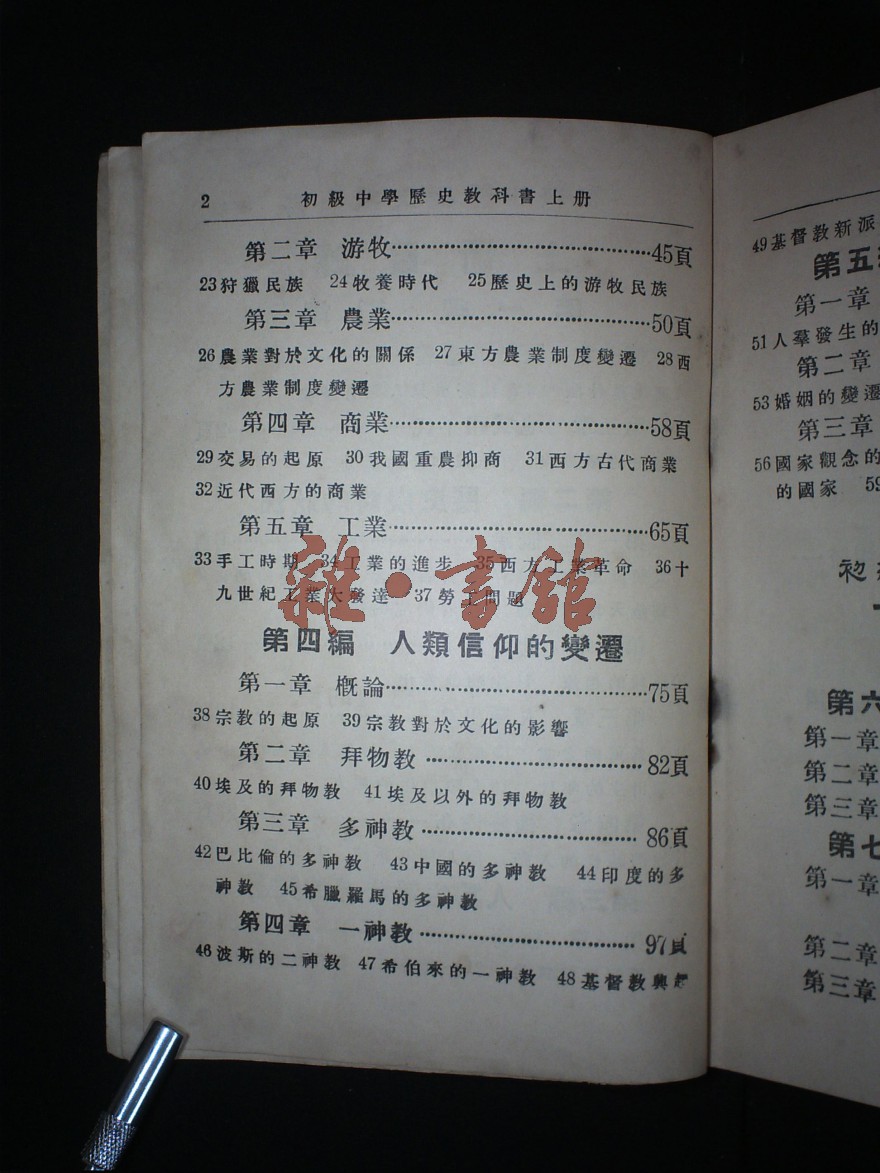 2 初級中學歷史教科書上册
第二章 游牧……………………………45頁
23狩獵民族 24牧養時代 25歷史上的游牧民族
第三章 農業……………………………50頁
26農業對於文化的關係 27東方農業制度變遷 28西
方農業制度變遷
第四章 商業……………………………58頁
29交易的起原 30我國重農抑商 31西方古代商業
32近代西方的商業
第五章 工業……………………………65頁
33手工時期 34工業的進步 35西方工業革命 36十
九世紀工業大發達 37勞工問題
雜·書舘
第四編 人類信仰的變遷
第一章 槪論……………………………75頁
38宗教的起原 39宗教對於文化的影響
第二章 拜物教……………………………82頁
40埃及的拜物教 41埃及以外的拜物教
第三章 多神教……………………………86頁
42巴比倫的多神教 43中國的多神教 44印度的多
神教 45希臘羅馬的多神教
第四章 一神教……………………………97頁
46波斯的二神教 47希伯來的一神教 48基督教興起
49基督教新派
第五
第一章
51人羣發生的
第二章
53婚姻的變遷
第三章
56國家觀念的
的國家 59
初
第六
第一章
第二章
第三章
第七
第一章
第二章
第三章